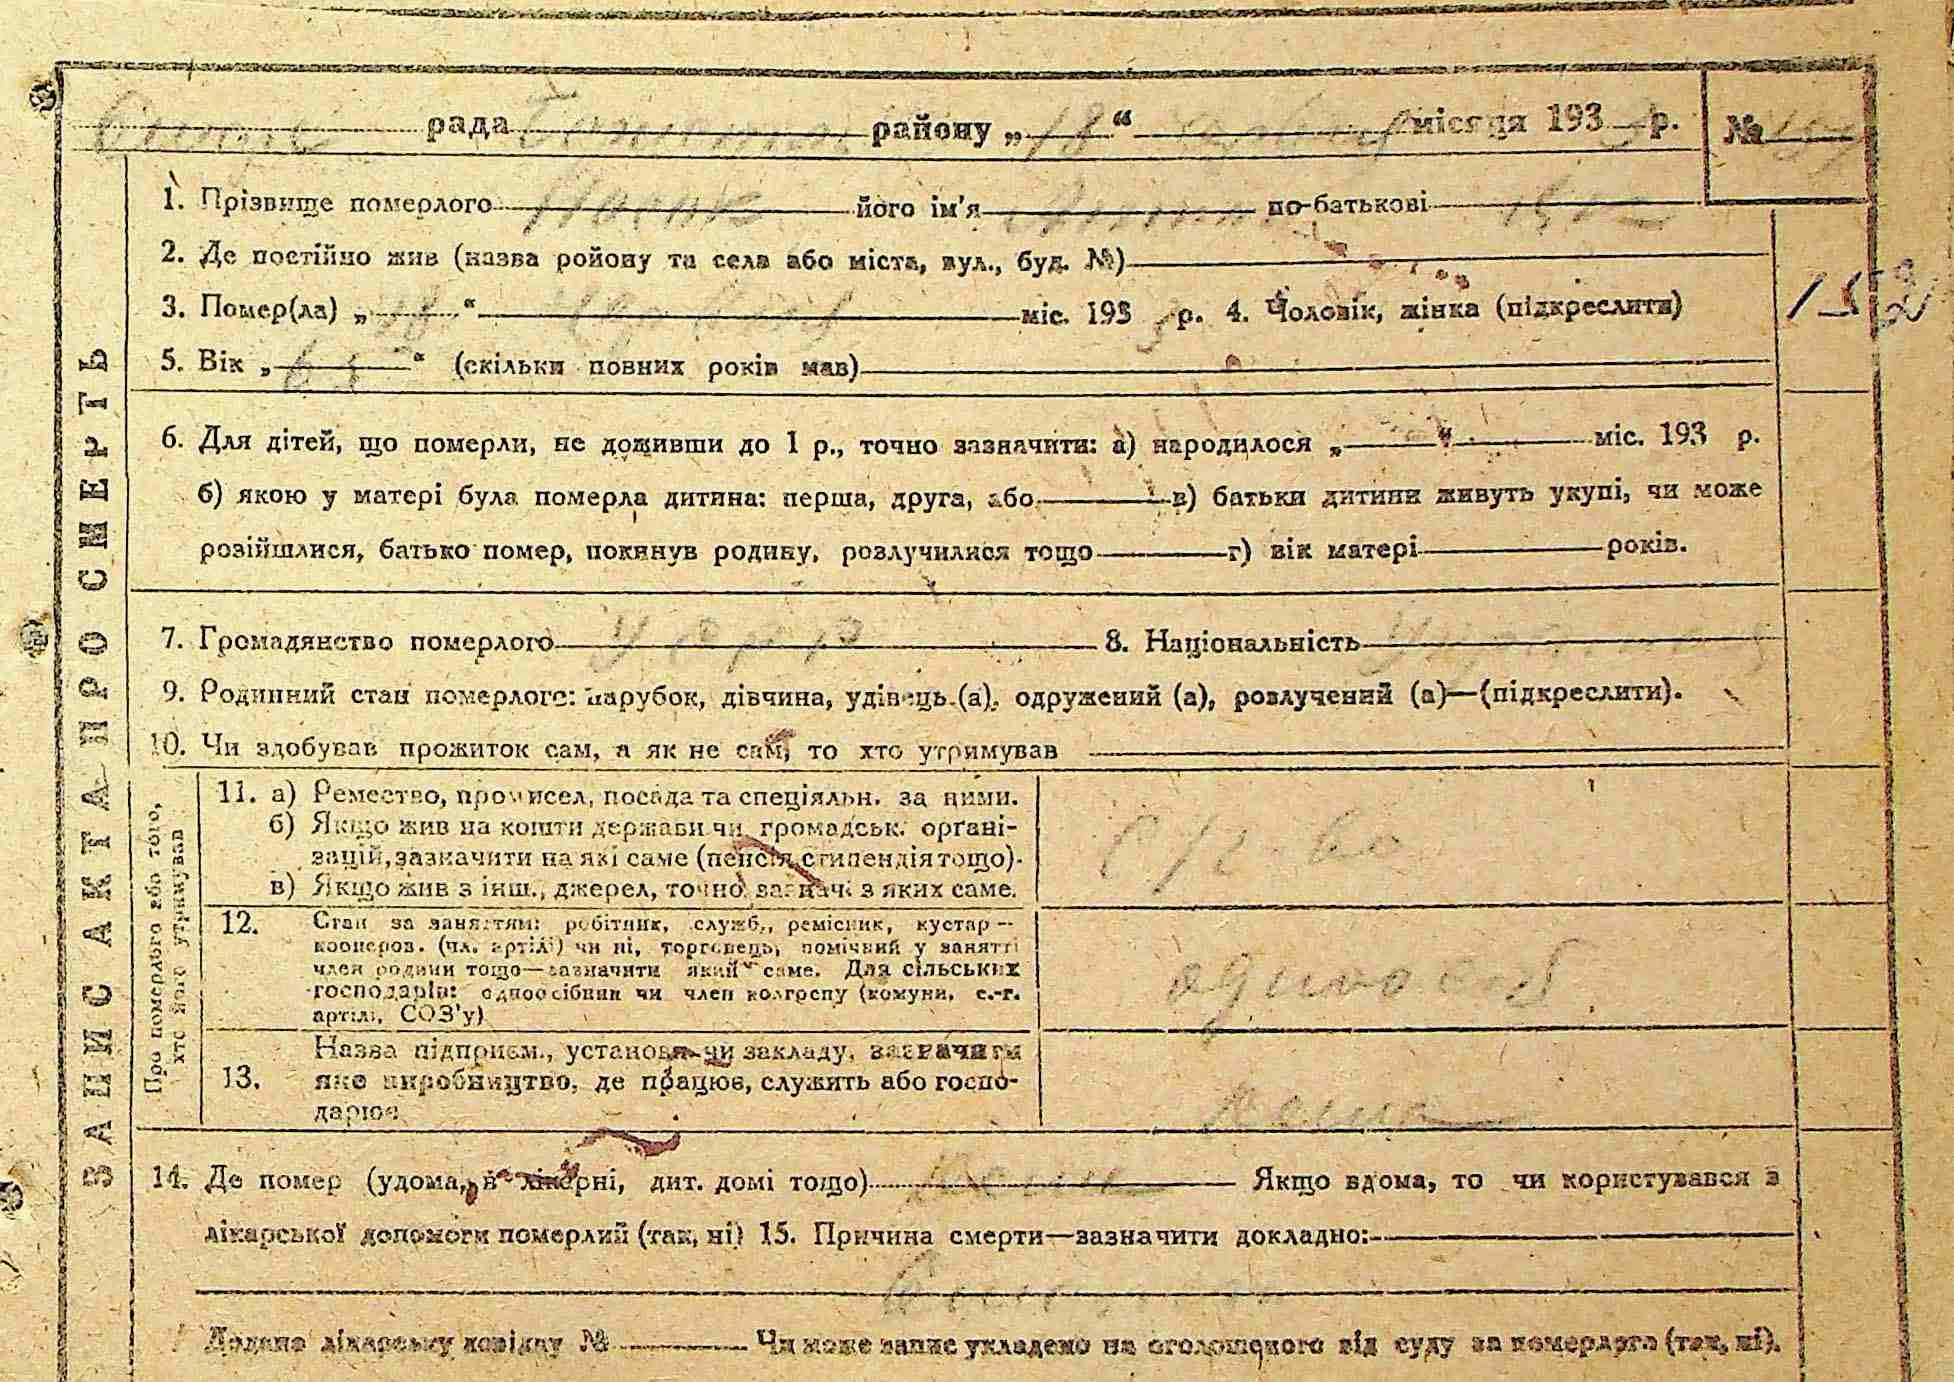 рада району „18“ місяця 193 р. №
1. Прізвище померлого його ім'я по-батькові
2. Де постійно жив (назва ройону та села або міста, вул., буд. №)
3. Помер(ла) „18“ червня міс. 193 3 р. 4. Чоловік, жінка (підкреслити)
152
5. Вік „65“ (скільки повних років мав)
6. Для дітей, що померли, не доживши до 1 р., точно зазначити: а) народилося „ “ міс. 193 р.
б) якою у матері була померла дитина: перша, друга, або в) батьки дитини живуть укупі, чи може
розійшлися, батько помер, покинув родину, розлучилися тощо г) вік матері років.
7. Громадянство померлого УСРР 8. Національність
9. Родинний стан померлого: парубок, дівчина, удівець (а), одружений (а), розлучений (а)—(підкреслити).
10. Чи здобував прожиток сам, а як не сам, то хто утримував
ЗАПИС АКТА ПРО СМЕРТЬ
Про померлого або того, хто його утримував
11. а) Ремество, промисел, посада та спеціяльн. за ними.
б) Якщо жив на кошти держави чи громадськ. органі-
зацій, зазначити на які саме (пенсія, стипендія тощо).
в) Якщо жив з інш., джерел, точно зазнач. з яких саме.
с/г-во
12. Стан за заняттям: робітник, служб., ремісник, кустар—
кооперов. (чл. артілі) чи ні, торговець, помічний у занятті
член родини тощо—зазначити який саме. Для сільських
господарів: одноосібник чи член колгоспу (комуни, с.-г.
артілі, СОЗ'у)
одноосіб
13. Назва підприєм., установи чи закладу, зазначити
яке виробництво, де працює, служить або госпо-
дарює
дома
14. Де помер (удома, в лікарні, дит. домі тощо) дома Якщо вдома, то чи користувався з
лікарської допомоги померлий (так, ні) 15. Причина смерти—зазначити докладно:
Додано лікарську довідку № Чи може запис укладено на оголошеного від суду за померлого (так, ні).